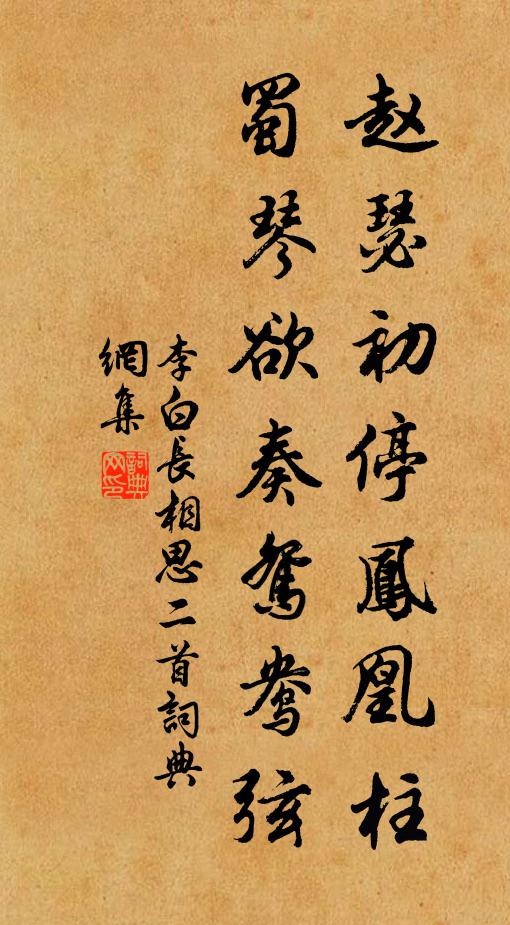 赵瑟初停鳳凰柱
蜀琴欲奏鴛鴦弦
李白長相思二首詞典
網集
詞典
网印